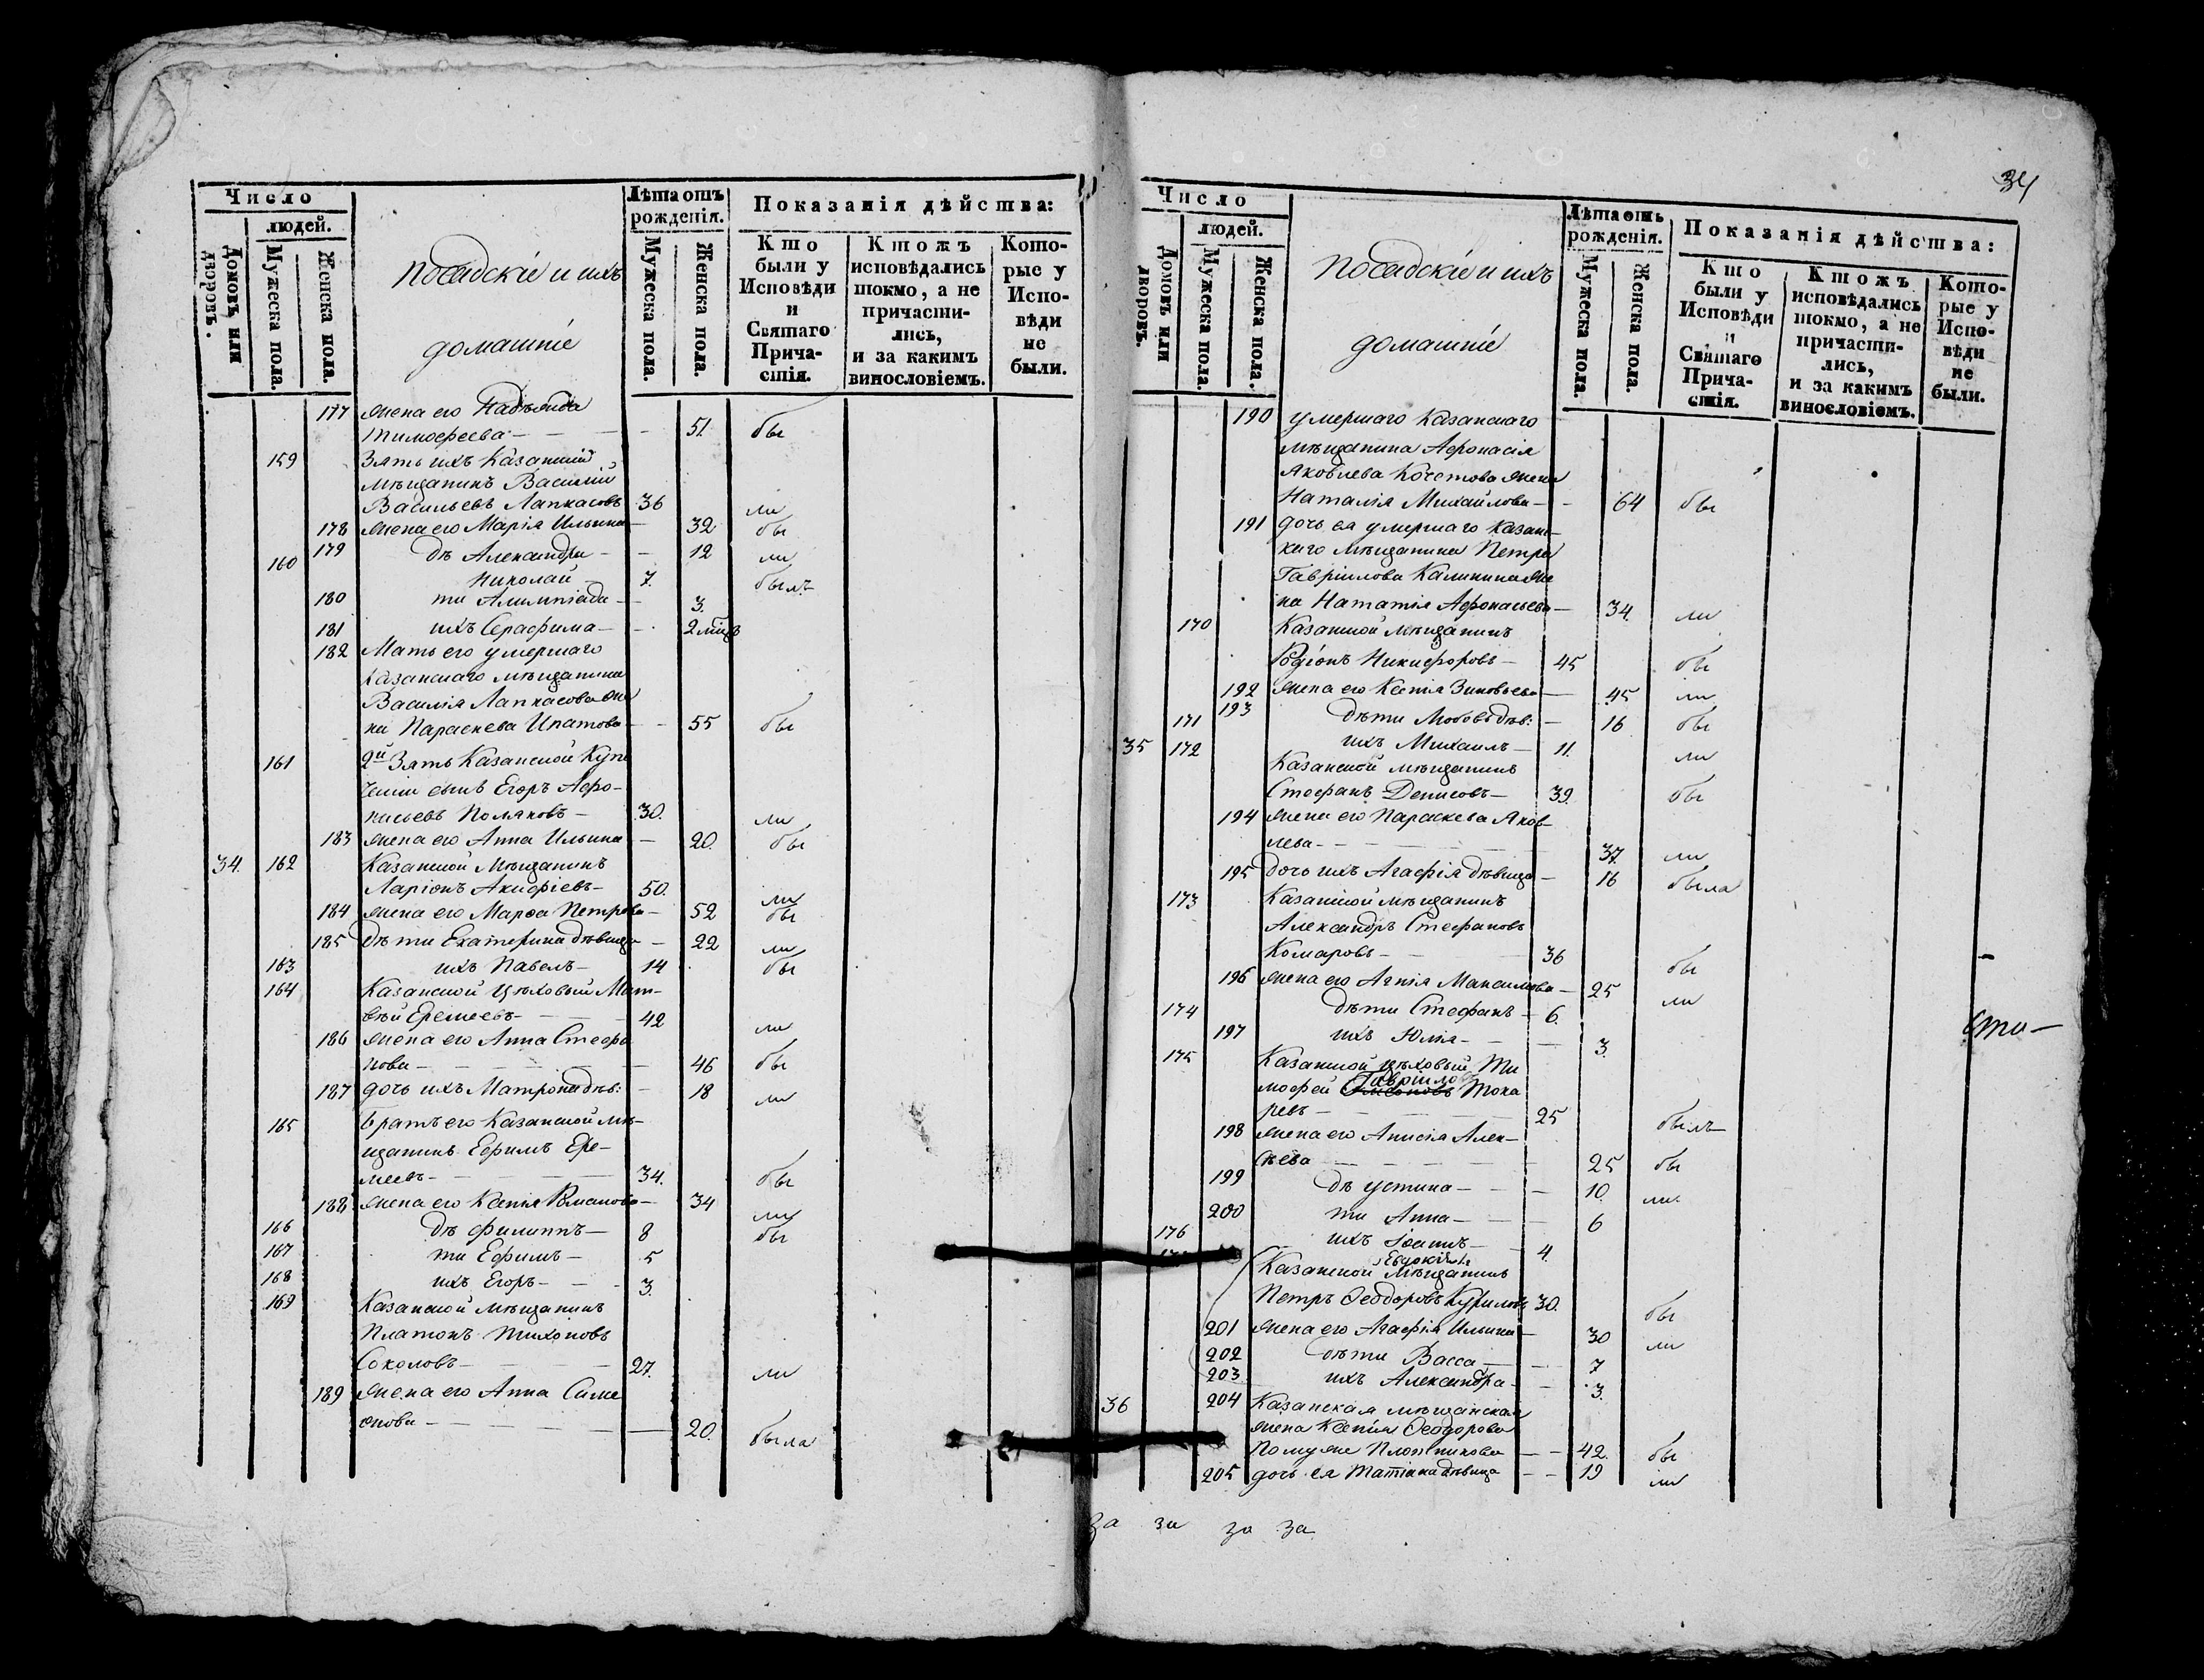 Число
людей.
Домовъ или дворовъ.
Мужеска пола.
Женска пола.
Посадскіе и ихъ
домашніе
Лѣта отъ
рожденія.
Мужеска пола.
Женска пола.
Показанія дѣйства:
Кто
были у
Исповѣди
и
Святаго
Прича-
стія.
Ктожъ
исповѣдались
токмо, а не
причасти-
лись,
и за какимъ
винословіемъ.
Кото-
рые у
Испо-
вѣди
не
были.
177 жена его Надежда
Тимофеева 51. бы
159 Зять ихъ Казанскій
мѣщанинъ Василій
Васильевъ Лапкасовъ 36 ли
178 жена его Марія Ильина 32 бы
179 дѣ Александра 12 ли
160 Николай 7. былъ
180 ти Алимпіада 3.
181 ихъ Серафима 2 мѣц
182 Мать его умершаго
Казанскаго мѣщанина
Василія Лапкасова же
на Параскева Ипатова 55 бы
161 2й Зять Казанской Купе
ческій сынъ Егоръ Афо-
насьевъ Поляковъ 30. ли
183 жена его Анна Ильина 20. бы
34. 162 Казанской Мѣщанинъ
Ларіонъ Акифіевъ 50. ли
184 жена его Марѳа Петрова 52 бы
185 Дѣти Екатерина дѣвица 22 ли
163 ихъ Павелъ 14 бы
164 Казанской Цѣховый Мат-
вѣй Еремеевъ 42 ли
186 жена его Анна Стефа
нова 46 бы
187 дочь ихъ Матрона дѣв: 18 ли
165 братъ его Казанской мѣ-
щанинъ Ефимъ Ере-
меевъ 34. бы
188 жена его Ксенія Романова 34 ли
166 дѣ Филиппъ 8 бы
167 ти Ефимъ 5
168 ихъ Егоръ 3.
169 Казанской мѣщанинъ
Платонъ Тихоновъ
Соколовъ 27. ли
189 жена его Анна Симе
онова 20. была
34
Число
людей.
Домовъ или дворовъ.
Мужеска пола.
Женска пола.
Посадскіе и ихъ
домашніе
Лѣта отъ
рожденія.
Мужеска пола.
Женска пола.
Показанія дѣйства:
Кто
были у
Исповѣди
и
Святаго
Прича-
стія.
Ктожъ
исповѣдались
токмо, а не
причасти-
лись,
и за какимъ
винословіемъ.
Кото-
рые у
Испо-
вѣди
не
были.
190 умершаго Казанскаго
мѣщанина Афонасія
Яковлева Кочетова жена
Наталія Михайлова 64 бы
191 дочь ея умершаго Казан-
скаго мѣщанина Петра
Гавріилова Калинина же
на Наталія Афонасьева 34. ли
170 Казанской мѣщанинъ
Родіонъ Никифоровъ 45 бы
192 жена его Ксенія Зиновьева 45 ли
193 дѣти Любовь дѣв: 16 бы
171 ихъ Михаилъ 11. ли
35 172 Казанской мѣщанинъ
Стефанъ Денисовъ 39. бы
194 жена его Параскева Яков-
лева 37. ли
195 дочь ихъ Агафія дѣвица 16 была
173 Казанской мѣщанинъ
Александръ Стефановъ
Комаровъ 36 бы
196 жена его Агнія Максимова 25 ли
174 дѣти Стефанъ 6.
197 ихъ Юлія 3.
175 Казанской цѣховый Ти
Гавріиловъ
мофей Токa
ревъ 25 былъ
198 жена его Анисія Алек-
сѣева 25 бы
199 дѣ Устина 10. ли
200 ти Анна 6
176 ихъ Іоаннъ 4.
Казанской мѣщанинъ
Петръ Ѳеодоровъ Куриловъ 30. бы
201 жена его Агафія Ильина 30 ли
202 дѣти Васса 7
203 ихъ Александра 3.
36 204 Казанская мѣщанская
жена Ксенія Ѳеодорова
по мужѣ Плотникова 42. бы
205 дочь ея Татіана дѣвица 19 ли
за за за за